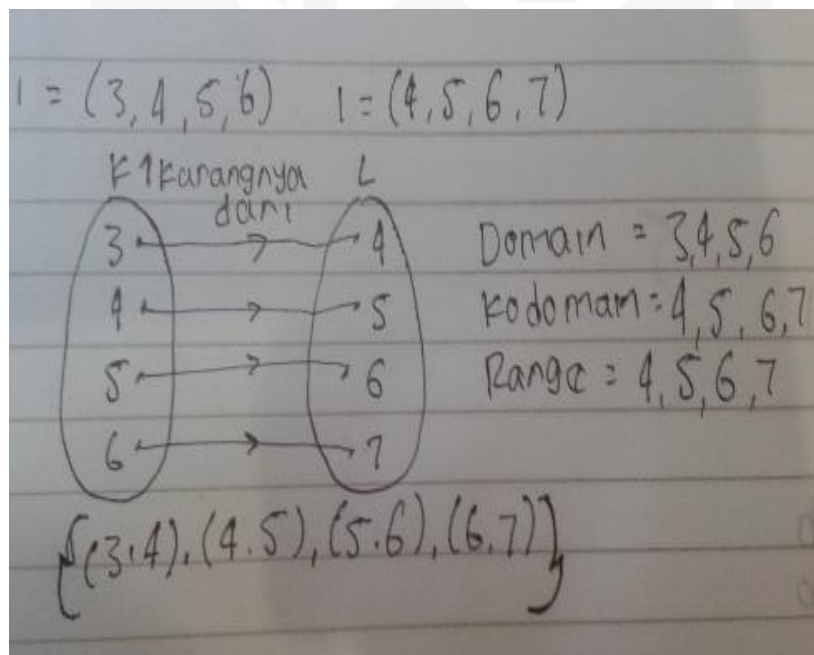 1 = (3, 4, 5, 6) 1 = (4, 5, 6, 7)
K 1 kurangnya dari L
3 4
4 5
5 6
6 7
Domain = 3,4,5,6
Kodomain = 4, 5, 6, 7
Range = 4, 5, 6, 7
{(3.4), (4.5), (5.6), (6.7)}